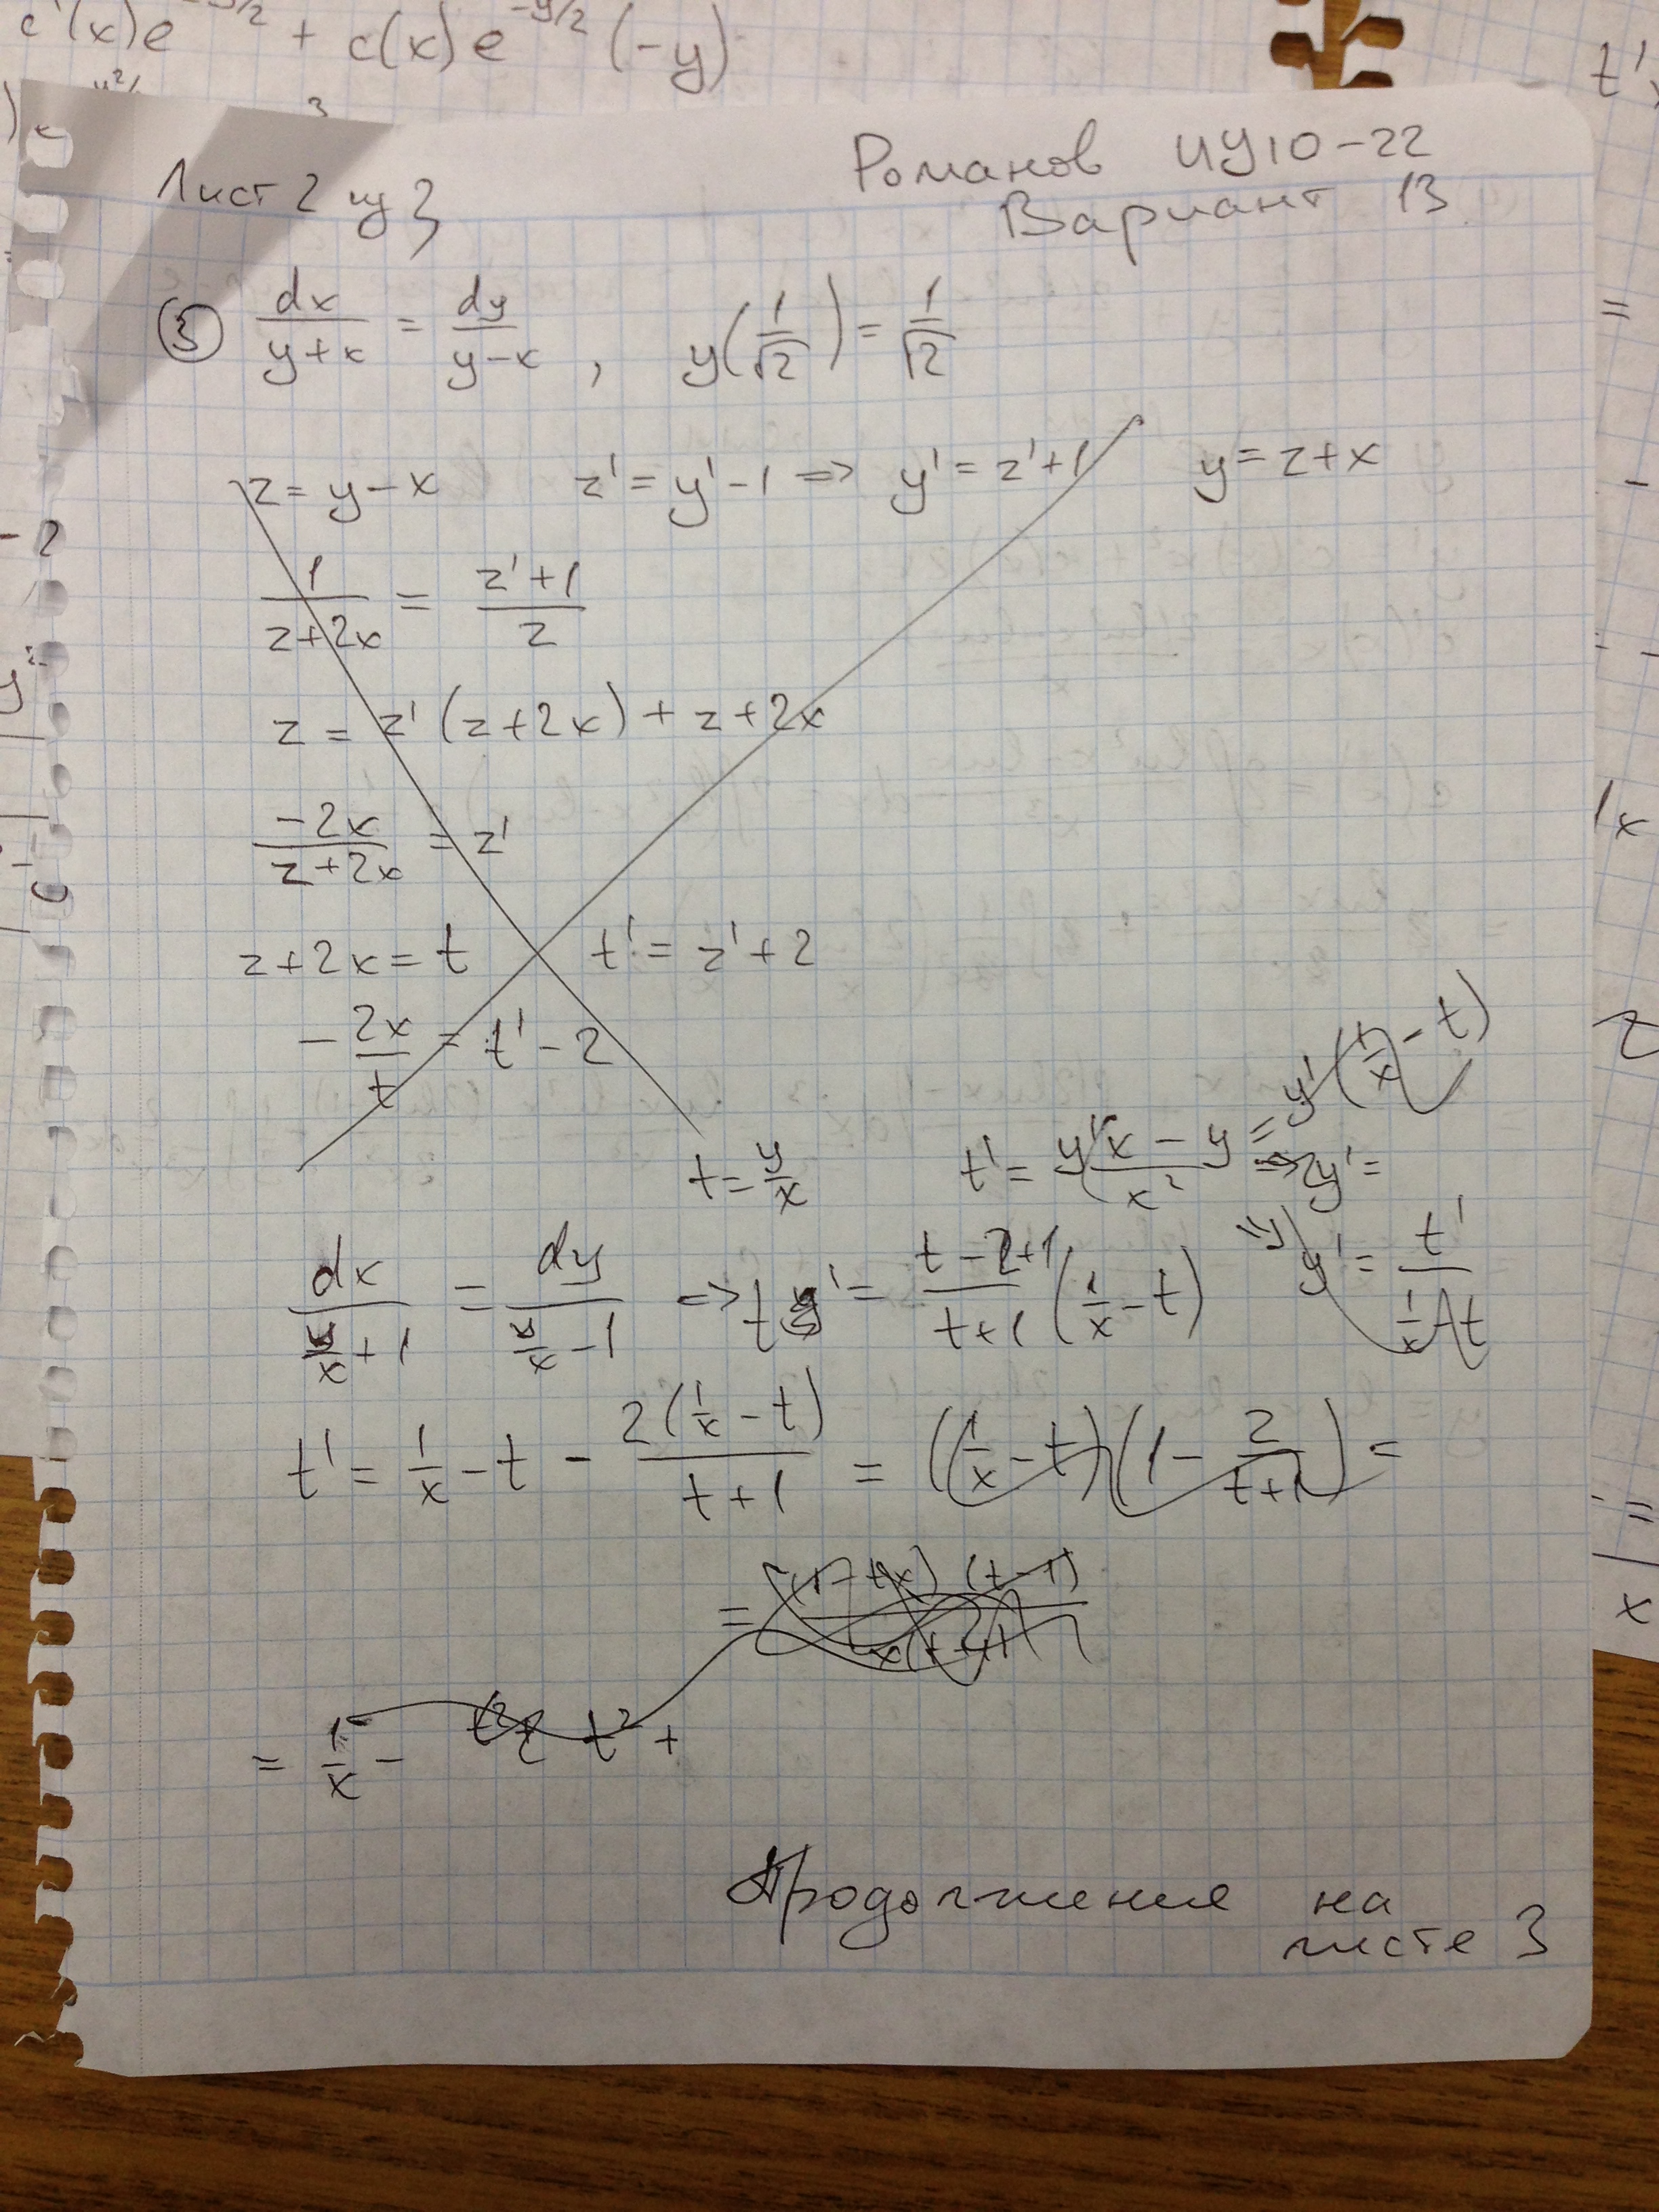 c'(x)e^{-y/2} + c(x)e^{-y/2}(-y)
Лист 2 из 3
Романов ИУ10-22
Вариант 13
③ dx/(y+x) = dy/(y-x), y(1/√2) = 1/√2
z = y-x z' = y'-1 => y' = z'+1 y = z+x
1/(z+2x) = (z'+1)/z
z = z'(z+2x) + z+2x
-2x/(z+2x) = z'
z+2x = t t' = z'+2
-2x/t = t'-2
t = y/x t' = (y'x - y)/x² = y'(1/x - t) => y' =
dx/(y/x+1) = dy/(y/x-1) => t' = (t-2+1)/(t+1) (1/x - t) y' = t'/(1/x - t)
t' = 1/x - t - 2(1/x - t)/(t+1) = (1/x - t)(1 - 2/(t+1)) =
= 1/x - t² +
Продолжение на
листе 3